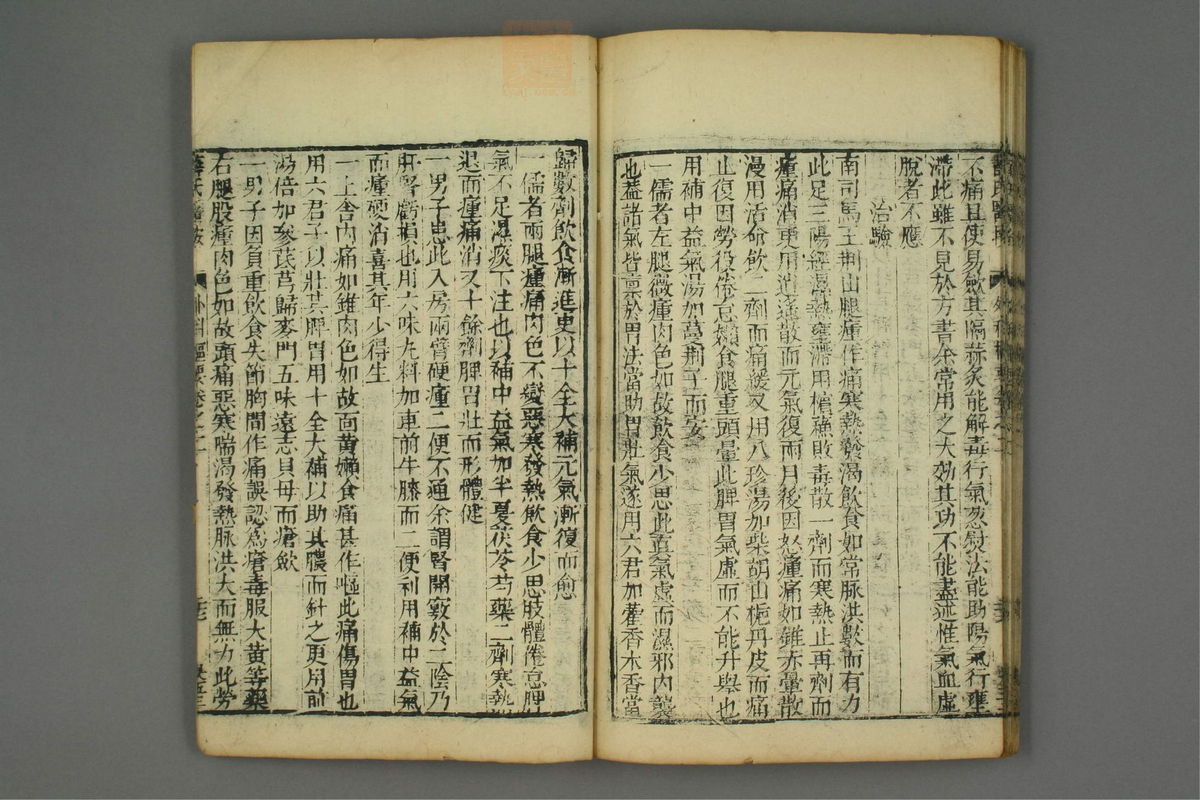 不痛且使易歛其隔蒜炙能解毒行氣葱熨法能助陽氣行壅
滯此雖不見於方書余常用之大効其功不能盡述惟氣血虛
脫者不應
治驗
南司馬王荆山腿腫作痛寒熱發渴飲食如常脉洪數而有力
此足三陽經濕熱壅滯用檳蘓敗毒散一劑而寒熱止再劑而
腫痛消更用逍遙散而元氣復兩月後因怒腫痛如錐赤暈散
漫用活命飲二劑而痛緩又用八珍湯加柴胡山梔丹皮而痛
止復因勞役倦怠懶食腿重頭暈此脾胃氣虛而不能升舉也
用補中益氣湯加蔓荆子而安
一儒者左腿微腫肉色如故飲食少思此真氣虛而濕邪內襲
也葢諸氣皆禀於胃法當助胃壯氣遂用六君加藿香木香當
歸數劑飲食漸進更以十全大補元氣漸復而愈
一儒者兩腿腫痛肉色不變惡寒發熱飲食少思肢體倦怠脾
氣不足濕痰下注也以補中益氣加半夏茯苓芍藥二劑寒熱
退而腫痛消又十餘劑脾胃壯而形體健
一男子患此入房兩臀硬腫二便不通余謂腎開竅於二陰乃
肝腎虧損也用六味丸料加車前牛膝而二便利用補中益氣
而腫硬消喜其年少得生
一上舍內痛如錐肉色如故面黃懶食痛甚作嘔此痛傷胃也
用六君子以壯其脾胃用十全大補以助其膿而針之更用前
湯倍加參芪芎歸麥門五味遠志貝母而瘡歛
一男子因負重飲食失節胸間作痛誤認為瘡毒服大黃等藥
右腿股腫肉色如故頭痛惡寒喘渴發熱脉洪大而無力此勞
薛氏醫按
外科樞要卷之二